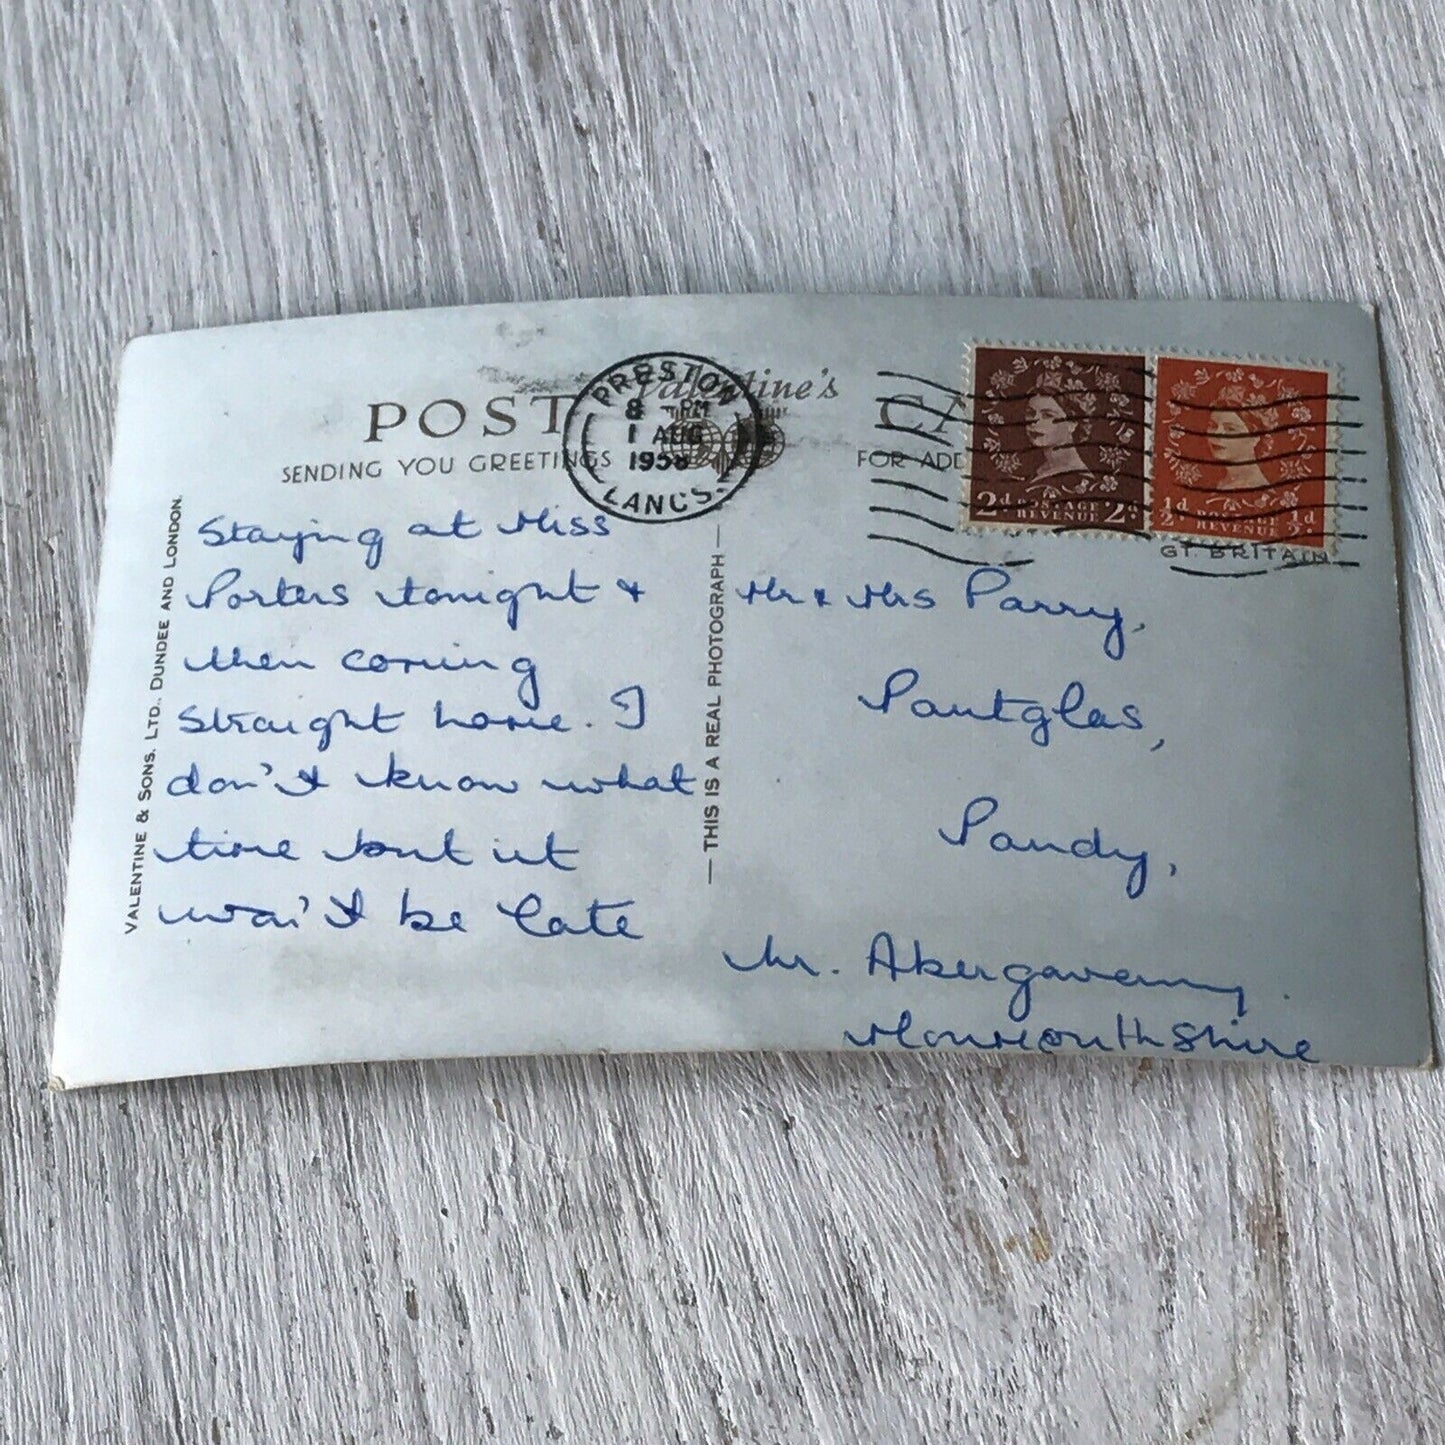 POST CA
Valentine's
SENDING YOU GREETINGS
FOR ADD
GT BRITAIN
PRESTON
8 PM
1 AUG
1958
LANCS.
2d POSTAGE REVENUE 2d
½d POSTAGE REVENUE ½d
VALENTINE & SONS. LTD., DUNDEE AND LONDON.
— THIS IS A REAL PHOTOGRAPH —
Staying at Miss
Porters tonight &
then coming
straight home. I
don't know what
time but it
won't be late
Mr & Mrs Parry,
Pantglas,
Pandy,
Nr. Abergavenny.
Monmouthshire